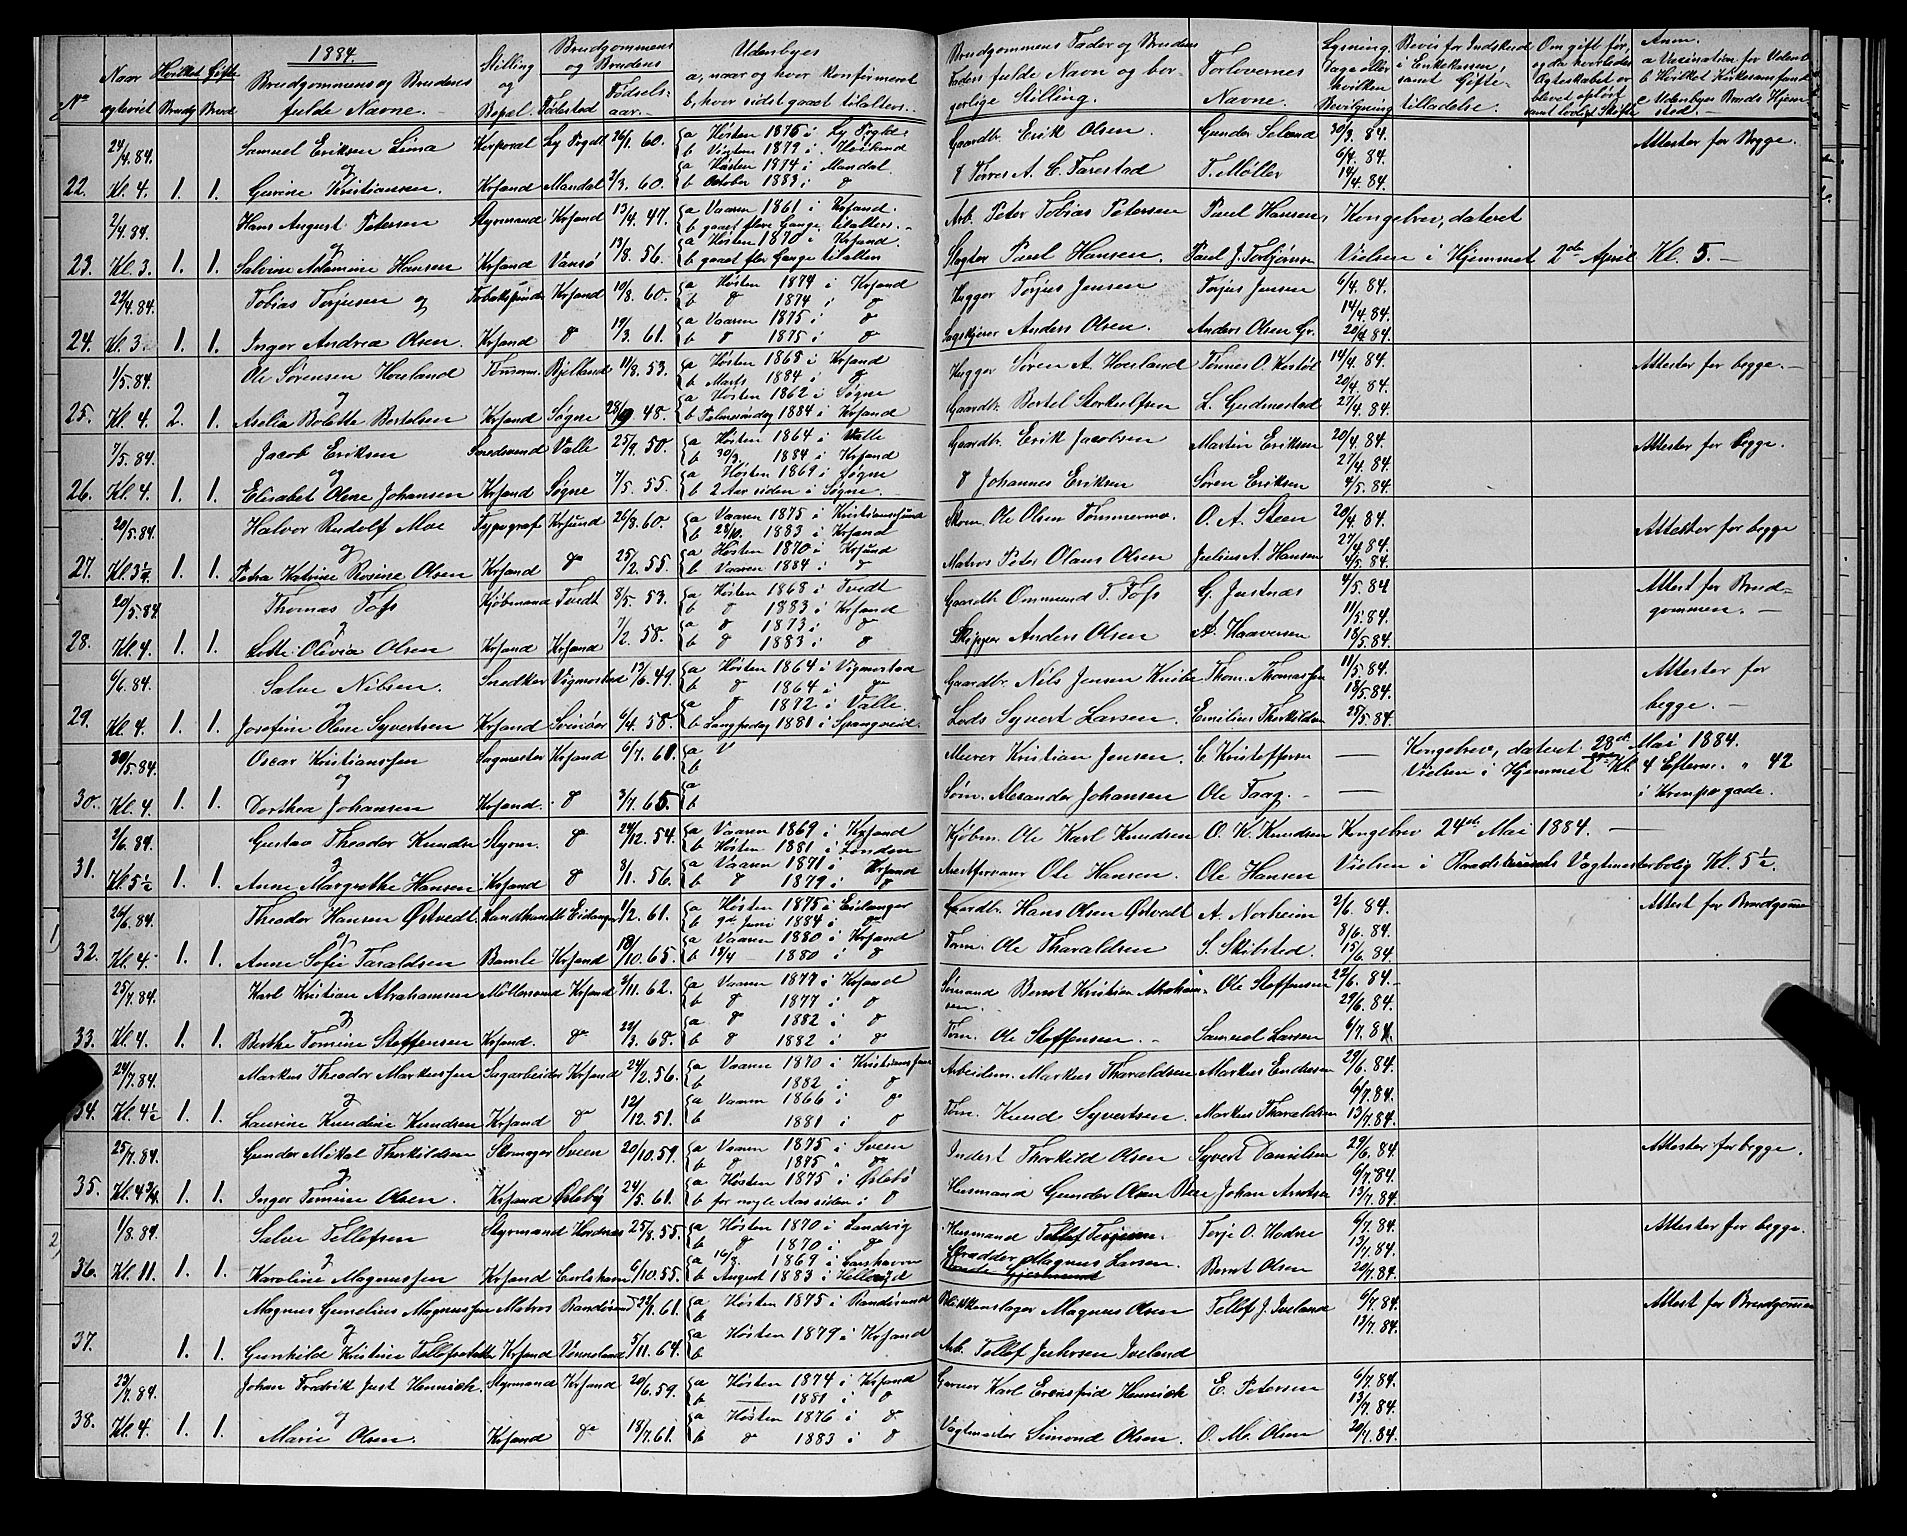 1884.
No Naar egteviet Hvilket Gifte Brudg Brud
Brudgommens og Brudens fulde Navne.
Stilling og Bopæl.
Brudgommens og Brudens Fødested Fødsels-aar.
Udenbyes
a, naar og hvor konfirmeret
b, hvor sidst gaaet tilalters.
Brudgommens Fader og Brudens Faders fulde Navn og borgerlige Stilling.
Forlovernes Navne.
Lysning. Dage eller hvilken Bevilgning
Bevis for Indskud i Enkekassen, samt Giftetilladelse.
Om gift før, og da hvorledes Ægteskabet er blevet opløst samt lovligt Skifte
Anm.
a Vaccination for Udenb.
b Hvilket Kirkesamfund
c Udenbyes Bruds Hjemsted.
24/4.84. Samuel Eriksen Lima Korporal Ly Fogdt 26/1. 60. a Høsten 1875 i Ly Fogde Gaardb. Erik Olsen. Gunder Seland 30/3. 84. Attester for Begge.
og b Vinteren 1879 i 6/4. 84.
a Høsten 1874 i Mandal
22. Kl. 4. 1. 1. Gurine Kristiansen. Krsand Mandal 2/3. 60. b October 1883 i do do Torres A. C. Tarestad T. Møller 14/4. 84.
2/4.84. Hans August Petersen Styrmand Krsand 13/4. 47. a Vaaren 1861 i Krsand. Arb. Peter Tobias Petersen Paul Hansen, Kongebrev, dateret
og b gaaet flere Gange tilalters.
a Høsten 1870 i Krsand.
23. Kl. 3. 1. 1. Salvine Adamine Hansen Krsand Vansø 13/8. 56. b gaaet fler Gange tilalters Slagter Paul Hansen. Paul J. Torbjørnsen Vielsen i Hjemmet 2den April Kl. 5. —
24/4.84. Tobias Torjusen og Tobaksspinder Krsand 10/8. 60. a Høsten 1874 i Krsand Hugger Torjus Jensen Torjus Jensen 6/4. 84.
b do 1874 i do 14/4. 84.
a Vaaren 1875 i do
24. Kl. 3. 1. 1. Inger Andrea Olsen. Krsand do 19/3. 61. b do 1875 i do Sagskjærer Anders Olsen. Anders Olsen Gr. 20/4 84.
1/5.84. Ole Sørensen Høesland Tømmerm. Bjelland 11/8. 53. a Høsten 1868 i Krsand Hugger Søren A. Høesland Tønnes O. Kostøl 14/4. 84. Attester for begge. —
og b Marts 1884 i do 20/4. 84.
a Høsten 1862 i Søgne
25. Kl. 4. 2. 1. Aselia Bolette Bertelsen Krsand Søgne 28/9 48. b Palmesøndag 1884 i Krsand Gaardb. Bertel Storkulfsen L. Gudmestad 27/4. 84.
7/5.84. Jacob Eriksen Smedsvend Valle 25/9. 50. a Høsten 1864 i Valle Gaardb. Erik Jacobsen Martin Eriksen 20/4. 84. Attester for begge.
og b 30/3. 1884 i Krsand 27/4. 84.
a Høsten 1869 i Søgne
26. Kl. 4. 1. 1. Elisabet Oline Johansen Krsand Søgne 7/5. 55. b 2 Aar siden i Søgne. do Johannes Eriksen Søren Eriksen 4/5. 84.
20/5.84. Halvor Rudolf Moe Typograf Krsund 26/8. 60. a Vaaren 1875 i Kristianssund Skom. Ole Olsen Tømmermo. O. A. Steen 20/4. 84. Attester for begge
og b 28/10. 1883 i Krsand 27/4. 84.
a Høsten 1870 i Krsund
27. Kl. 3 1/4. 1. 1. Petra Katrine Rosine Olsen Krsand do 25/2. 55. b Vaaren 1884 i do Matros Peter Olaus Olsen Julius A. Hansen 4/5. 84.
20/5.84. Thomas Tofs Kjøbmand Tvedt 8/5. 53. a Høsten 1868 i Tvedt Gaardb. Ommund T. Tofs G. Justnæs 4/5. 84 Attest for Brud-
og b do 1883 i Krsand 11/5. 84. gommen. —
a do 1873 i do
28. Kl. 4. 1. 1. Lotte Olivia Olsen Krsand Krsand 7/2. 58. b do 1883 i do Skipper Anders Olsen A. Haaversen 18/5. 84.
6/6.84. Salve Nilsen. Snedker Vigmostad 13/6. 49. a Høsten 1864 i Vigmostad Gaardbr. Nils Jensen Thom. Thomassen 11/5. 84. Attester for
og b do 1864 i do 18/5. 84. begge. —
a do 1872 i Valle.
29. Kl. 4. 1. 1. Josefine Oline Syvertsen Krsand Svinør 6/4. 58. b Langfredag 1881 i Spangereid. Lods Syvert Larsen. Emilius Therkildsen 25/5. 84.
30/5.84. Oscar Kristianssen Sagmester Krsand 6/7. 61. a V Murer Kristian Jensen C Kristoffersen — Kongebrev, dateret 28de Mai 1884.
og b Vielsen i Hjemmet Kl. 4 Efterm. " 42
30. Kl. 4. 1. 1. Dorthea Johansen Krsand. do 3/7. 65. a b Søm. Alexander Johansen Ole Faag. — i Kronprgade.
2/6.84. Gustav Theodor Knudsen Styrm. do 24/12. 54. a Vaaren 1869 i Krsand Kjøbm. Ole Karl Knudsen O. K. Knudsen Kongebrev 24de Mai 1884. —
og b Høsten 1881 i London
a Vaaren 1871 i Krsand
31. Kl. 5 1/2 1. 1. Anne Margrethe Hansen Krsand do 3/1. 56. b do 1879 i do Arestforvarer Ole Hansen. Ole Hansen Vielsen i Raadstuens Vagtmesterbolig Kl. 5 1/2.
26/6.84. Theodor Hansen Østvedt Landhandl Eidanger 1/2. 61. a Høsten 1875 i Eidanger Gaardbr. Hans Olsen Østvedt A. Norheim 2/6. 84. Attest for Brudgommen
og b 9de Juni 1884 i do 8/6. 84.
a Vaaren 1880 i Krsand
32. Kl. 4. 1. 1. Anne Sofie Taraldsen Bamle Krsand 18/10. 65. b 18/4 1880 i do Tøm. Ole Tharaldsen S. Skibsted. 15/6. 84.
25/7.84. Karl Kristian Abrahamsen Møllersvend Krsand 3/11. 62. a Vaaren 1877 i Krsand Sømand Bernt Kristian Abraham- Ole Steffensen 22/6. 84.
og b do 1877 i do sen. 29/6. 84.
a do 1882 i do
33. Kl. 4. 1. 1. Berthe Tomine Steffensen Krsand. do 22/3. 68. b do 1882 i do Tøm. Ole Steffensen. — Samuel Larsen 6/7. 84.
24/7.84. Markus Theodor Markussen Sagarbeider Krsand 24/2. 56. a Vaaren 1870 i Kristianssan Arbeidsm. Markus Tharaldsen Markus Endresen 29/6. 84.
og b 1882 i do 6/7. 84.
a Vaaren 1866 i do
34. Kl. 4 1/2 1. 1. Laurine Knudine Knudsen Krsand do 12/12. 51. b 1881 i do Tøm. Knud Syvertsen. Markus Tharaldsen 13/7. 84.
25/7.84. Gunder Mikal Therkildsen Skomager Sveen 20/10. 59. a Vaaren 1875 i Sveen Inderst Thorkild Olsen Syvert Danielsen 29/6. 84. Attester for begge.
og b do 1875 i do 6/7. 84.
a Høsten 1875 i Øslebø
35. Kl. 4 3/4. 1. 1. Inger Tomine Olsen. Krsand Øslebø 24/5. 61. b for nogle Aar siden i do Husmand Gunder Olsen Johan Arntsen 13/7. 84.
1/8.84. Salve Tellefsen Styrmand Høvdnæs 25/8. 55. a Høsten 1870 i Landvig Husmand Tellef Terjesen. Torje O. Hodne 6/7. 84. Attester for begge.
og b do 1870 i do 13/7. 84.
a 16/9. 1869 i Larshavn Skrædder Magnus Larsen.
36. Kl. 11. 1. 1. Karoline Magnussen Krsand Carlshavn 6/10. 55. b August 1883 i Hellerød Bernt Olsen 20/7. 84.
Magnus Gunelius Magnussen Matros Randøsund 22/1. 61. a Høsten 1875 i Randøsund Blikkenslager Magnus Olsen Tellef J. Iveland 6/7. 84. Attest for Brudgommen
og b 13/7. 84.
37. 1. 1. Gunhilde Kristine Tellefsdatter Krsand Vennesland 5/11. 64. a Høsten 1879 i Krsand b Arb. Tellef Jakobsen Iveland
23/7.84. Johan Fredrik Just Hennich Styrmand Krsand 20/6. 59. a Høsten 1874 i Krsand Garver Karl Erensfrid Hennich E. Petersen 6/7. 84.
og b — 1881 i do 13/7. 84.
a Høsten 1876 i do
38. Kl. 4. 1. 1. Marie Olsen. Krsand do 18/7. 61. b do 1883 i do Vagtmester Simond Olsen. O. M. Olsen 20/7. 84.